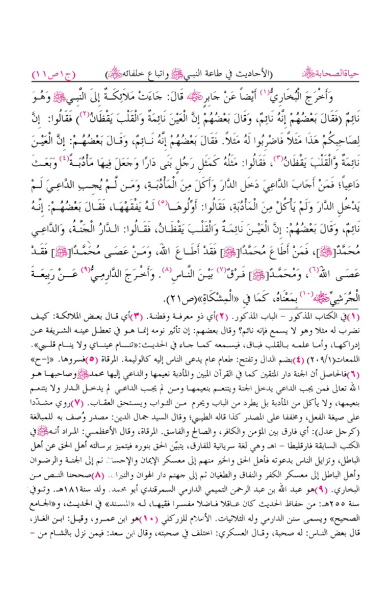 حياة الصحابة رضي الله عنهم (الأحاديث في طاعة النبي ﷺ واتباع خلفائه رضي الله عنهم) (ج١ص١١)
وَأَخْرَجَ الْبُخَارِيُّ(١) أَيْضاً عَنْ جَابِرٍ ﵁ قَالَ: جَاءَتْ مَلاَئِكَةٌ إِلَى النَّبِيِّ ﷺ وَهُوَ
نَائِمٌ (فَقَالَ بَعْضُهُمْ إِنَّهُ نَائِمٌ، وَقَالَ بَعْضُهُمْ إِنَّ الْعَيْنَ نَائِمَةٌ وَالْقَلْبَ يَقْظَانُ(٢)) فَقَالُوا: إِنَّ
لِصَاحِبِكُمْ هَذَا مَثَلاً فَاضْرِبُوا لَهُ مَثَلاً. فَقَالَ بَعْضُهُمْ إِنَّهُ نَائِمٌ، وَقَالَ بَعْضُهُمْ: إِنَّ الْعَيْنَ
نَائِمَةٌ وَالْقَلْبَ يَقْظَانُ(٣)، فَقَالُوا: مَثَلُهُ كَمَثَلِ رَجُلٍ بَنَى دَارًا وَجَعَلَ فِيهَا مَأْدُبَةً(٤) وَبَعَثَ
دَاعِياً؛ فَمَنْ أَجَابَ الدَّاعِيَ دَخَلَ الدَّارَ وَأَكَلَ مِنَ الْمَأْدُبَةِ، وَمَنْ لَمْ يُجِبِ الدَّاعِيَ لَمْ
يَدْخُلِ الدَّارَ وَلَمْ يَأْكُلْ مِنَ الْمَأْدُبَةِ، فَقَالُوا: أَوِّلُوهَا(٥) لَهُ يَفْقَهْهَا، فَقَالَ بَعْضُهُمْ: إِنَّهُ
نَائِمٌ، وَقَالَ بَعْضُهُمْ: إِنَّ الْعَيْنَ نَائِمَةٌ وَالْقَلْبَ يَقْظَانُ، فَقَالُوا: الدَّارُ الْجَنَّةُ، وَالدَّاعِي
مُحَمَّدٌ[ﷺ]، فَمَنْ أَطَاعَ مُحَمَّدًا[ﷺ] فَقَدْ أَطَاعَ اللهَ، وَمَنْ عَصَى مُحَمَّدًا[ﷺ] فَقَدْ
عَصَى اللهَ(٦)، وَمُحَمَّدٌ[ﷺ] فَرْقٌ(٧) بَيْنَ النَّاسِ(٨). وَأَخْرَجَ الدَّارِمِيُّ(٩) عَنْ رَبِيعَةَ
الْجُرَشِيِّ ﵁(١٠) بِمَعْنَاهُ، كَمَا فِي «الْمِشْكَاةِ»(ص٢١).
(١) في الكتاب المذكور – الباب المذكور. (٢) أي ذو معرفة وفطنة. (٣) أي قال بعض الملائكة: كيف
نضرب له مثلا وهو لا يسمع فإنه نائم؟ وقال بعضهم: إن تأثير نومه إنما هو في تعطل عينه الشريفة عن
إدراكها، وأما علمه بالقلب فباق، فيسمعه كما جاء في الحديث: «تنام عيناي ولا ينام قلبي».
اللمعات(٢٠٩/١) (٤) بضم الدال وتفتح: طعام عام يدعى الناس إليه كالوليمة. المرقاة (٥) فسروها. «إ-ح»
(٦) فالحاصل أن الجنة دار المتقين كما في القرآن المبين والمأدبة نعيمها والداعي إليها محمد ﷺ وصاحبها هو
الله تعالى فمن يجب الداعي يدخل الجنة ويتنعم بنعيمها ومن لم يجب الداعي لم يدخل الدار ولا يتنعم
بنعيمها، ولا يأكل من المأدبة بل يطرد من الباب ويحرم من الثواب ويستحق العقاب. (٧) روي مشددًا
على صيغة الفعل، ومخففا على المصدر كذا قاله الطيبي؛ وقال السيد جمال الدين: مصدر وُصف به للمبالغة
(كرجل عدل): أي فارق بين المؤمن والكافر، والصالح والفاسق. المرقاة، وقال الأعظمي: المراد أنه ﷺ في
الكتب السابقة فارقليطا – اهـ وهي لغة سريانية للفارق، يتبيّن الحق بنوره فيتميز برسالته أهل الحق عن أهل
الباطل، وتزايل الناس بدعوته فأهل الحق والخير منهم إلى معسكر الإيمان والإحسان ثم إلى الجنة والرضوان
وأهل الباطل إلى معسكر الكفر والنفاق والطغيان ثم إلى جهنم دار الهوان والنيران. (٨) صححنا النص من
البخاري. (٩) هو عبد الله بن عبد الرحمن التميمي الدارمي السمرقندي أبو محمد. ولد سنة ١٨١هـ. وتوفي
سنة ٢٥٥هـ: من حفاظ الحديث كان عاقلا فاضلا مفسرا فقيها، له «المسند» في الحديث، و«الجامع
الصحيح» ويسمى سنن الدارمي وله الثلاثيات. الأعلام للزركلي (١٠) هو ابن عمرو، وقيل: ابن الغاز،
قال بعض الناس: له صحبة، وقال العسكري: اختلف في صحبته، وقال ابن سعد: فيمن نزل بالشام من –